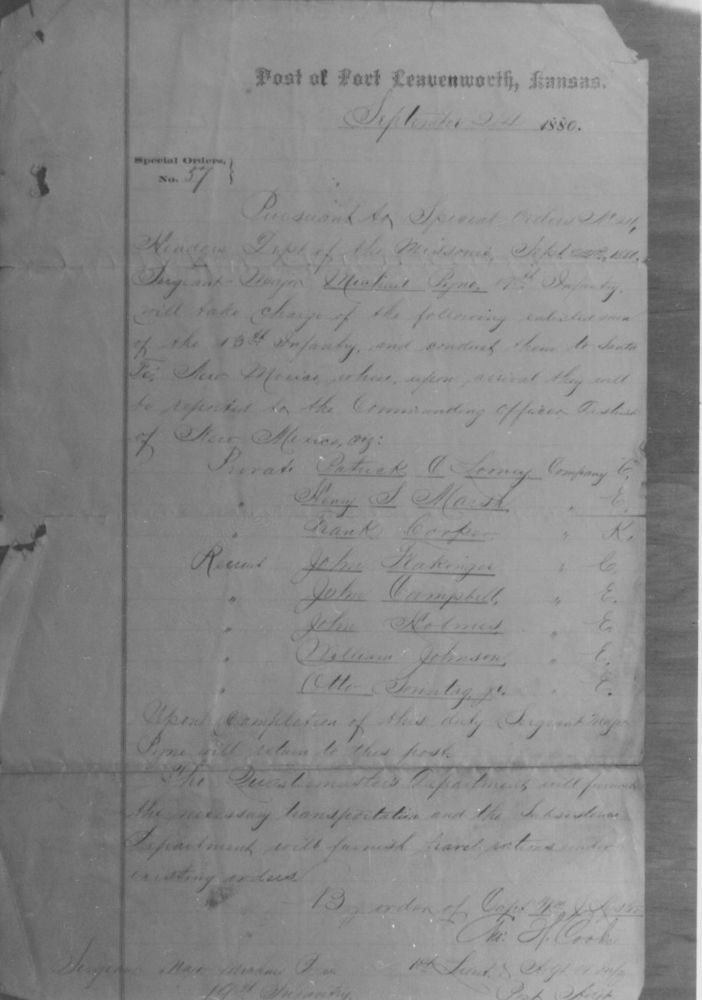 Post of Fort Leavenworth, Kansas.
September 1880.
Special Orders,
No. 57
Pursuant to Special Orders No.
Headqrs Dept of the Missouri, Sept
Sergeant Major Michael Pyne, 19th Infantry,
will take charge of the following enlisted men
of the 13th Infantry, and conduct them to Santa
Fe, New Mexico, where, upon arrival they will
be reported to the Commanding Officer District
of New Mexico, viz:
Private Patrick O Looney Company C,
" Henry S Marsh " E.
" Frank Cooper. " K.
Recruit John " C,
" John Campbell, " E.
" John Holmes " E
" William Johnson, " E.
" Otto Sonntag jr. " E.
Upon completion of this duty Sergeant Major
Pyne will return to this post.
The Quartermaster's Department will furnish
the necessary transportation and the Subsistence
Department will furnish travel rations under
existing orders
By order of Capt
H. Cook
Sergeant Major Michael Pyne 1st Lieut. & Adjt
19th Infantry. Post Adjt